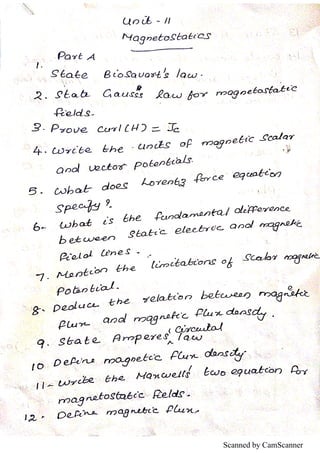 Unit - II
Magnetostatics
Part A
1.
State Biosavart's law.
2. State Gauss's law for magnetostatic
fields.
3. Prove curl(H) = Jc
4. write the units of magnetic scalar
and vector potentials.
5. what does Lorentz force equation
specify?
6. what is the fundamental difference
between static electric and magnetic
field lines.
7. Mention the limitations of scalar magnetic
potential.
8. Deduce the relation between magnetic
flux and magnetic flux density.
9. State Amperes circuital law
10 Define magnetic flux density.
11- write the Maxwells two equation for
magnetostatic fields.
12. Define magnetic flux.
Scanned by CamScanner